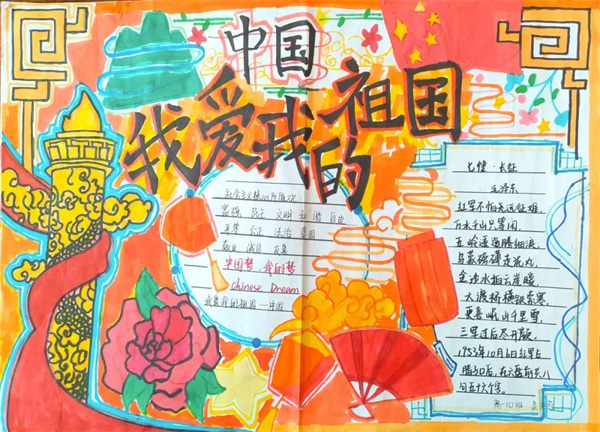 中国
我爱我的祖国
社会主义核心价值观
富强 民主 文明 和谐 自由
平等 公正 法治 爱国
敬业 诚信 友善
中国梦,我的梦
chinese Dream
我爱我的祖国—中国
七律·长征
毛泽东
红军不怕远征难,
万水千山只等闲。
五岭逶迤腾细浪,
乌蒙磅礴走泥丸。
金沙水拍云崖暖,
大渡桥横铁索寒。
更喜岷山千里雪,
三军过后尽开颜。